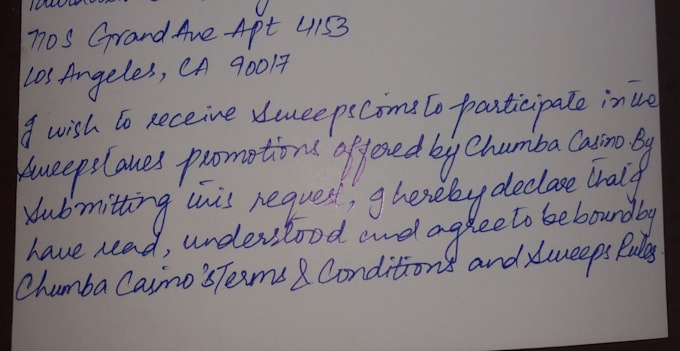 770 S Grand Ave Apt 4153
Los Angeles, CA 90017
I wish to receive Sweeps Coins to participate in the
sweepstakes promotions offered by Chumba Casino. By
submitting this request, I hereby declare that I
have read, understood and agree to be bound by
Chumba Casino's Terms & Conditions and Sweeps Rules.